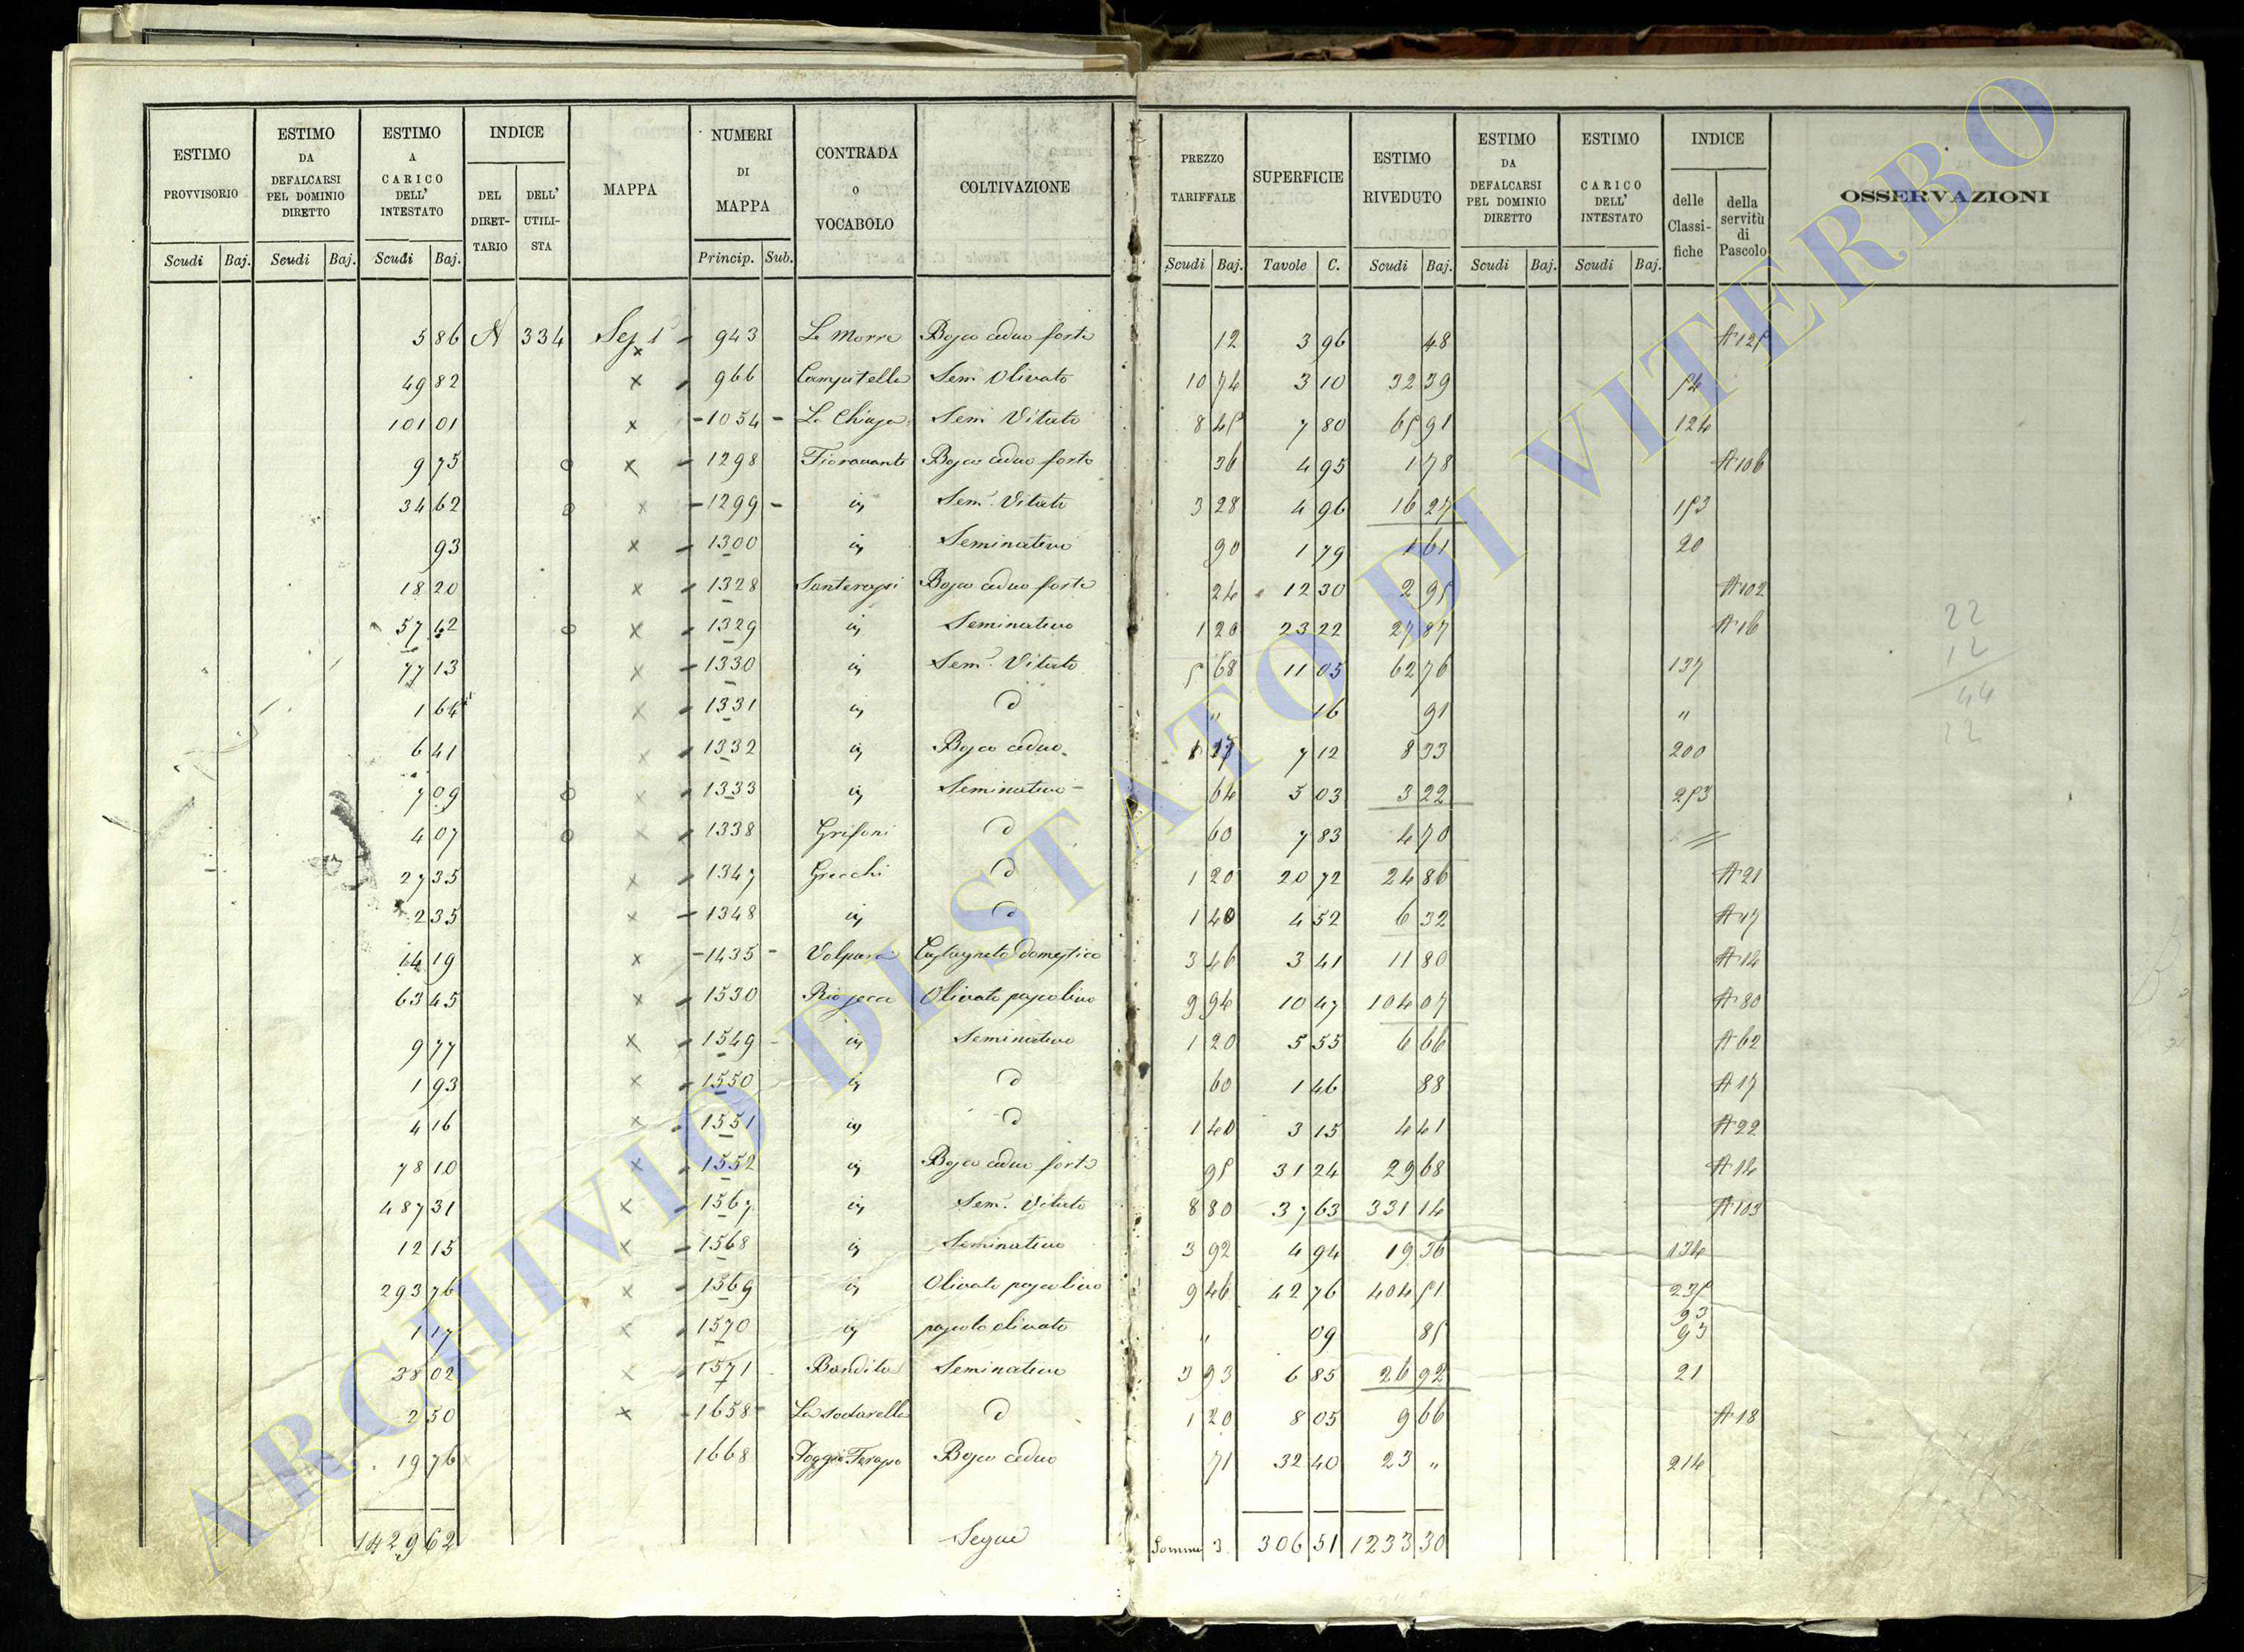 ESTIMO PROVVISORIO
ESTIMO DA DEFALCARSI PEL DOMINIO DIRETTO
ESTIMO A CARICO DELL' INTESTATO
INDICE
DEL DIRET-TARIO
DELL' UTILI-STA
MAPPA
NUMERI DI MAPPA
CONTRADA O VOCABOLO
COLTIVAZIONE
PREZZO TARIFFALE
SUPERFICIE
ESTIMO RIVEDUTO
ESTIMO DA DEFALCARSI PEL DOMINIO DIRETTO
ESTIMO CARICO DELL' INTESTATO
INDICE
delle Classi-fiche
della servitù di Pascolo
OSSERVAZIONI
Scudi Baj. Scudi Baj. Scudi Baj. Princip. Sub. Scudi Baj. Tavole C. Scudi Baj. Scudi Baj. Scudi Baj.
5 86 N 334 Sez 1 943 Le Morre Bosco ceduo forte 12 3 96 48 A 125
49 82 x 966 Campitella Sem Olivato 10 74 3 10 32 39 54
101 01 x 1054 La Chiusa Sem Vitato 8 45 7 80 65 91 124
9 75 x 1298 Fioravante Bosco ceduo forte 36 4 95 1 78 A 106
34 62 x 1299 in Sem. Vitato 3 28 4 96 16 27 153
93 x 1300 in Seminativo 90 1 79 1 61 20
18 20 x 1328 Bosco ceduo forte 24 12 30 2 95 A 102
57 62 x 1329 in Seminativo 1 20 23 22 27 87 A 16
77 13 x 1330 in Sem. Vitato 5 68 11 05 62 76 137
1 64 x 1331 in d " 16 91 "
6 41 x 1332 in Bosco ceduo 1 17 7 12 8 33 200
7 09 x 1333 in Seminativo 64 5 03 3 22 253
4 07 x 1338 Grifoni d 60 7 83 4 70 "
27 35 x 1347 Grecchi d 1 20 20 72 24 86 A 21
2 35 x 1348 in d 1 40 4 52 6 32 A 17
14 19 x 1435 Volpara Castagneto domestico 3 46 3 41 11 80 A 14
63 45 x 1530 Rio secco Olivato pascolivo 9 94 10 47 104 07 A 80
9 77 x 1549 in Seminativo 1 20 5 55 6 66 A 62
1 93 x 1550 in d 60 1 46 88 A 17
4 16 x 1551 in d 1 40 3 15 4 41 A 22
78 10 x 1552 in Bosco ceduo forte 95 31 24 29 68 A 14
487 31 x 1567 in Sem. Vitato 8 80 37 63 331 14 A 103
12 15 x 1568 in Seminativo 3 92 4 94 19 36 134
293 76 x 1569 in Olivato pascolivo 9 46 42 76 404 51 235
1 17 x 1570 in pascolo olivato " 09 85 93 93
38 02 x 1571 Bandita Seminativo 3 93 6 85 26 92 21
2 50 x 1658 La Sodarella d 1 20 8 05 9 66 A 18
19 76 1668 Poggio Terapo Bosco ceduo 71 32 40 23 " 214
1429 62 Segue Somma 3 306 51 1233 30
22
12
44
22
ARCHIVIO DI STATO DI VITERBO